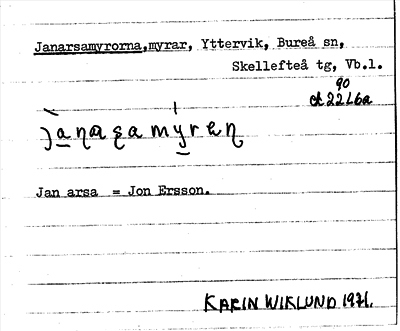 Janarsamyrorna,myrar, Yttervik, Bureå sn,
Skellefteå tg, Vb.l.
90
jaŋaʂamyreŋ
Jan arsa = Jon Ersson.
KARIN WIKLUND 1971.